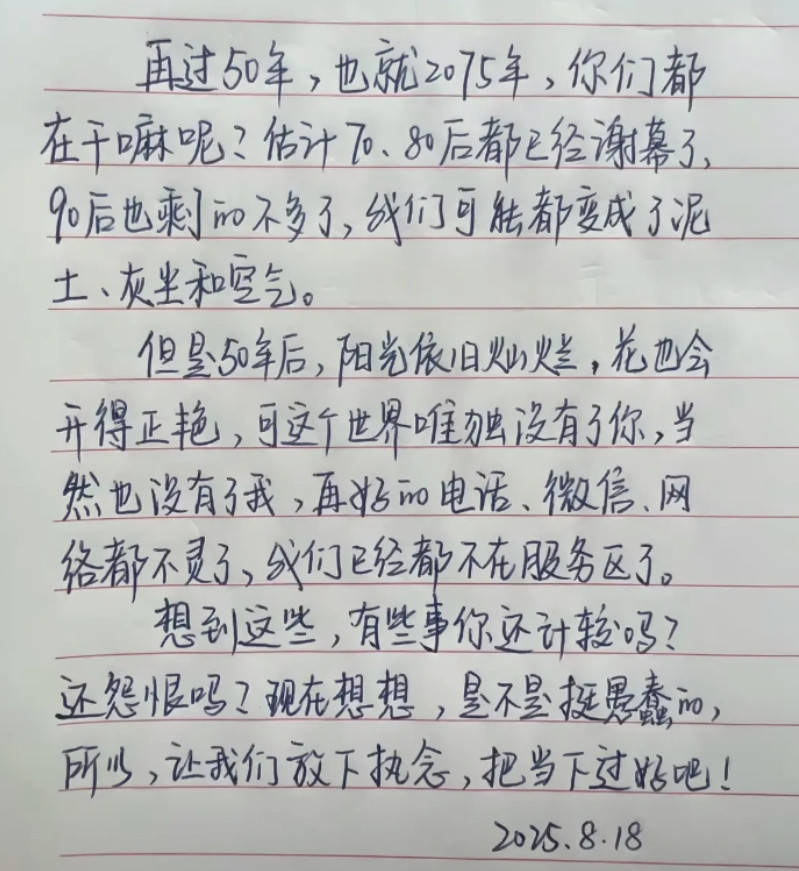 再过50年，也就2075年，你们都
在干嘛呢？估计70、80后都已经谢幕了，
90后也剩的不多了，我们可能都变成了泥
土、灰尘和空气。
但是50年后，阳光依旧灿烂，花也会
开得正艳，可这个世界唯独没有了你，当
然也没有了我，再好的电话、微信、网
络都不灵了，我们已经都不在服务区了。
想到这些，有些事你还计较吗？
还怨恨吗？现在想想，是不是挺愚蠢的，
所以，让我们放下执念，把当下过好吧！
2025.8.18